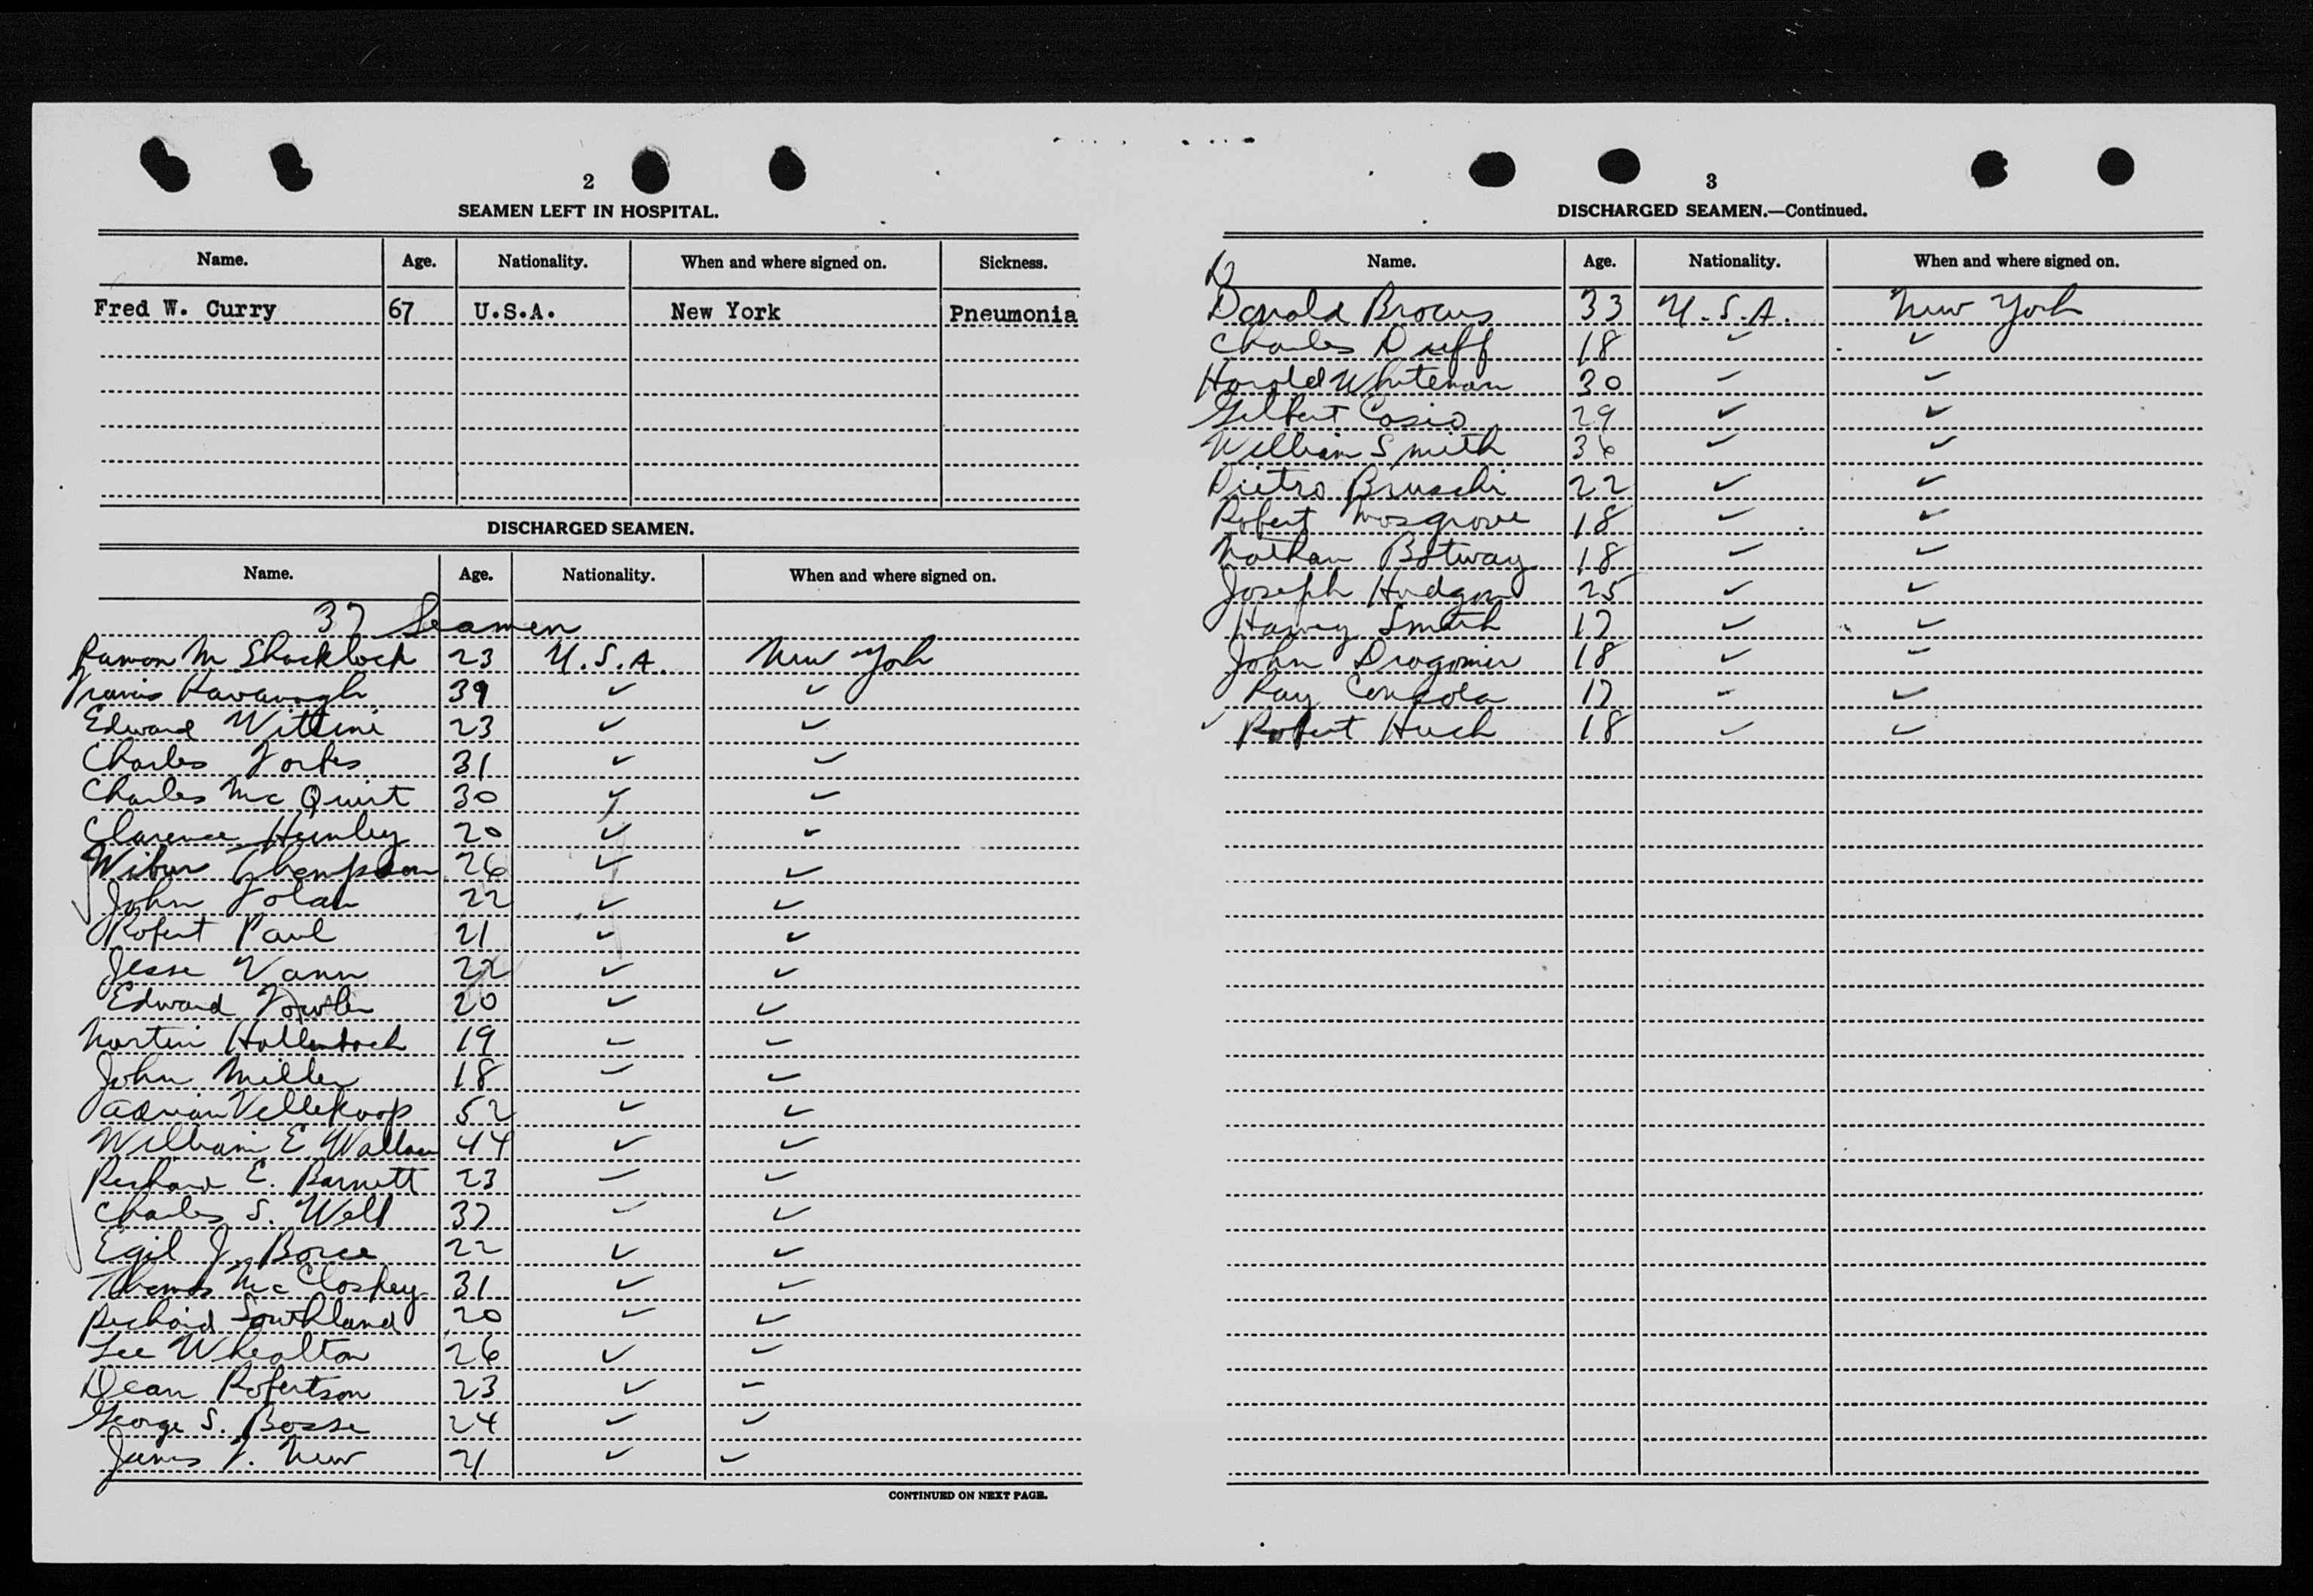 2
SEAMEN LEFT IN HOSPITAL.
Name. Age. Nationality. When and where signed on. Sickness.
Fred W. Curry 67 U.S.A. New York Pneumonia
DISCHARGED SEAMEN.
Name. Age. Nationality. When and where signed on.
37 Seamen
Ramon M Shacklock 23 U.S.A. New York
Francis Kavanagh 39 ✓ ✓
Edward Vittini 23 ✓ ✓
Charles Forbes 31 ✓ ✓
Charles McQuirt 30 ✓ ✓
Clarence 20 ✓ ✓
Wilbur Thompson 26 ✓ ✓
John Folan 22 ✓ ✓
Robert Paul 21 ✓ ✓
Jesse Vann 22 ✓ ✓
Edward Fowler 20 ✓ ✓
Martin Hollenbach 19 ✓ ✓
John Miller 18 ✓ ✓
Adrian Vellekoop 52 ✓ ✓
William E Wallace 44 ✓ ✓
Richard E. Barnett 23 ✓ ✓
Charles S. 37 ✓ ✓
Egil J. 22 ✓ ✓
Thomas McCloskey 31 ✓ ✓
Richard Southland 20 ✓ ✓
Lee Whealton 26 ✓ ✓
Dean Robertson 23 ✓ ✓
George S. Bosse 24 ✓ ✓
James New 21 ✓ ✓
CONTINUED ON NEXT PAGE.
3
DISCHARGED SEAMEN.—Continued.
Name. Age. Nationality. When and where signed on.
Donald 33 U.S.A. New York
Charles Duff 18 ✓ ✓
Harold Whiteman 30 ✓ ✓
Gilbert Cosio 29 ✓ ✓
William Smith 36 ✓ ✓
Pietro Bruschi 22 ✓ ✓
Robert Mosgrove 18 ✓ ✓
Nathan Botway 18 ✓ ✓
Joseph Hudgin 25 ✓ ✓
Harvey Smith 17 ✓ ✓
John Dragomir 18 ✓ ✓
Ray 17 ✓ ✓
Robert 18 ✓ ✓